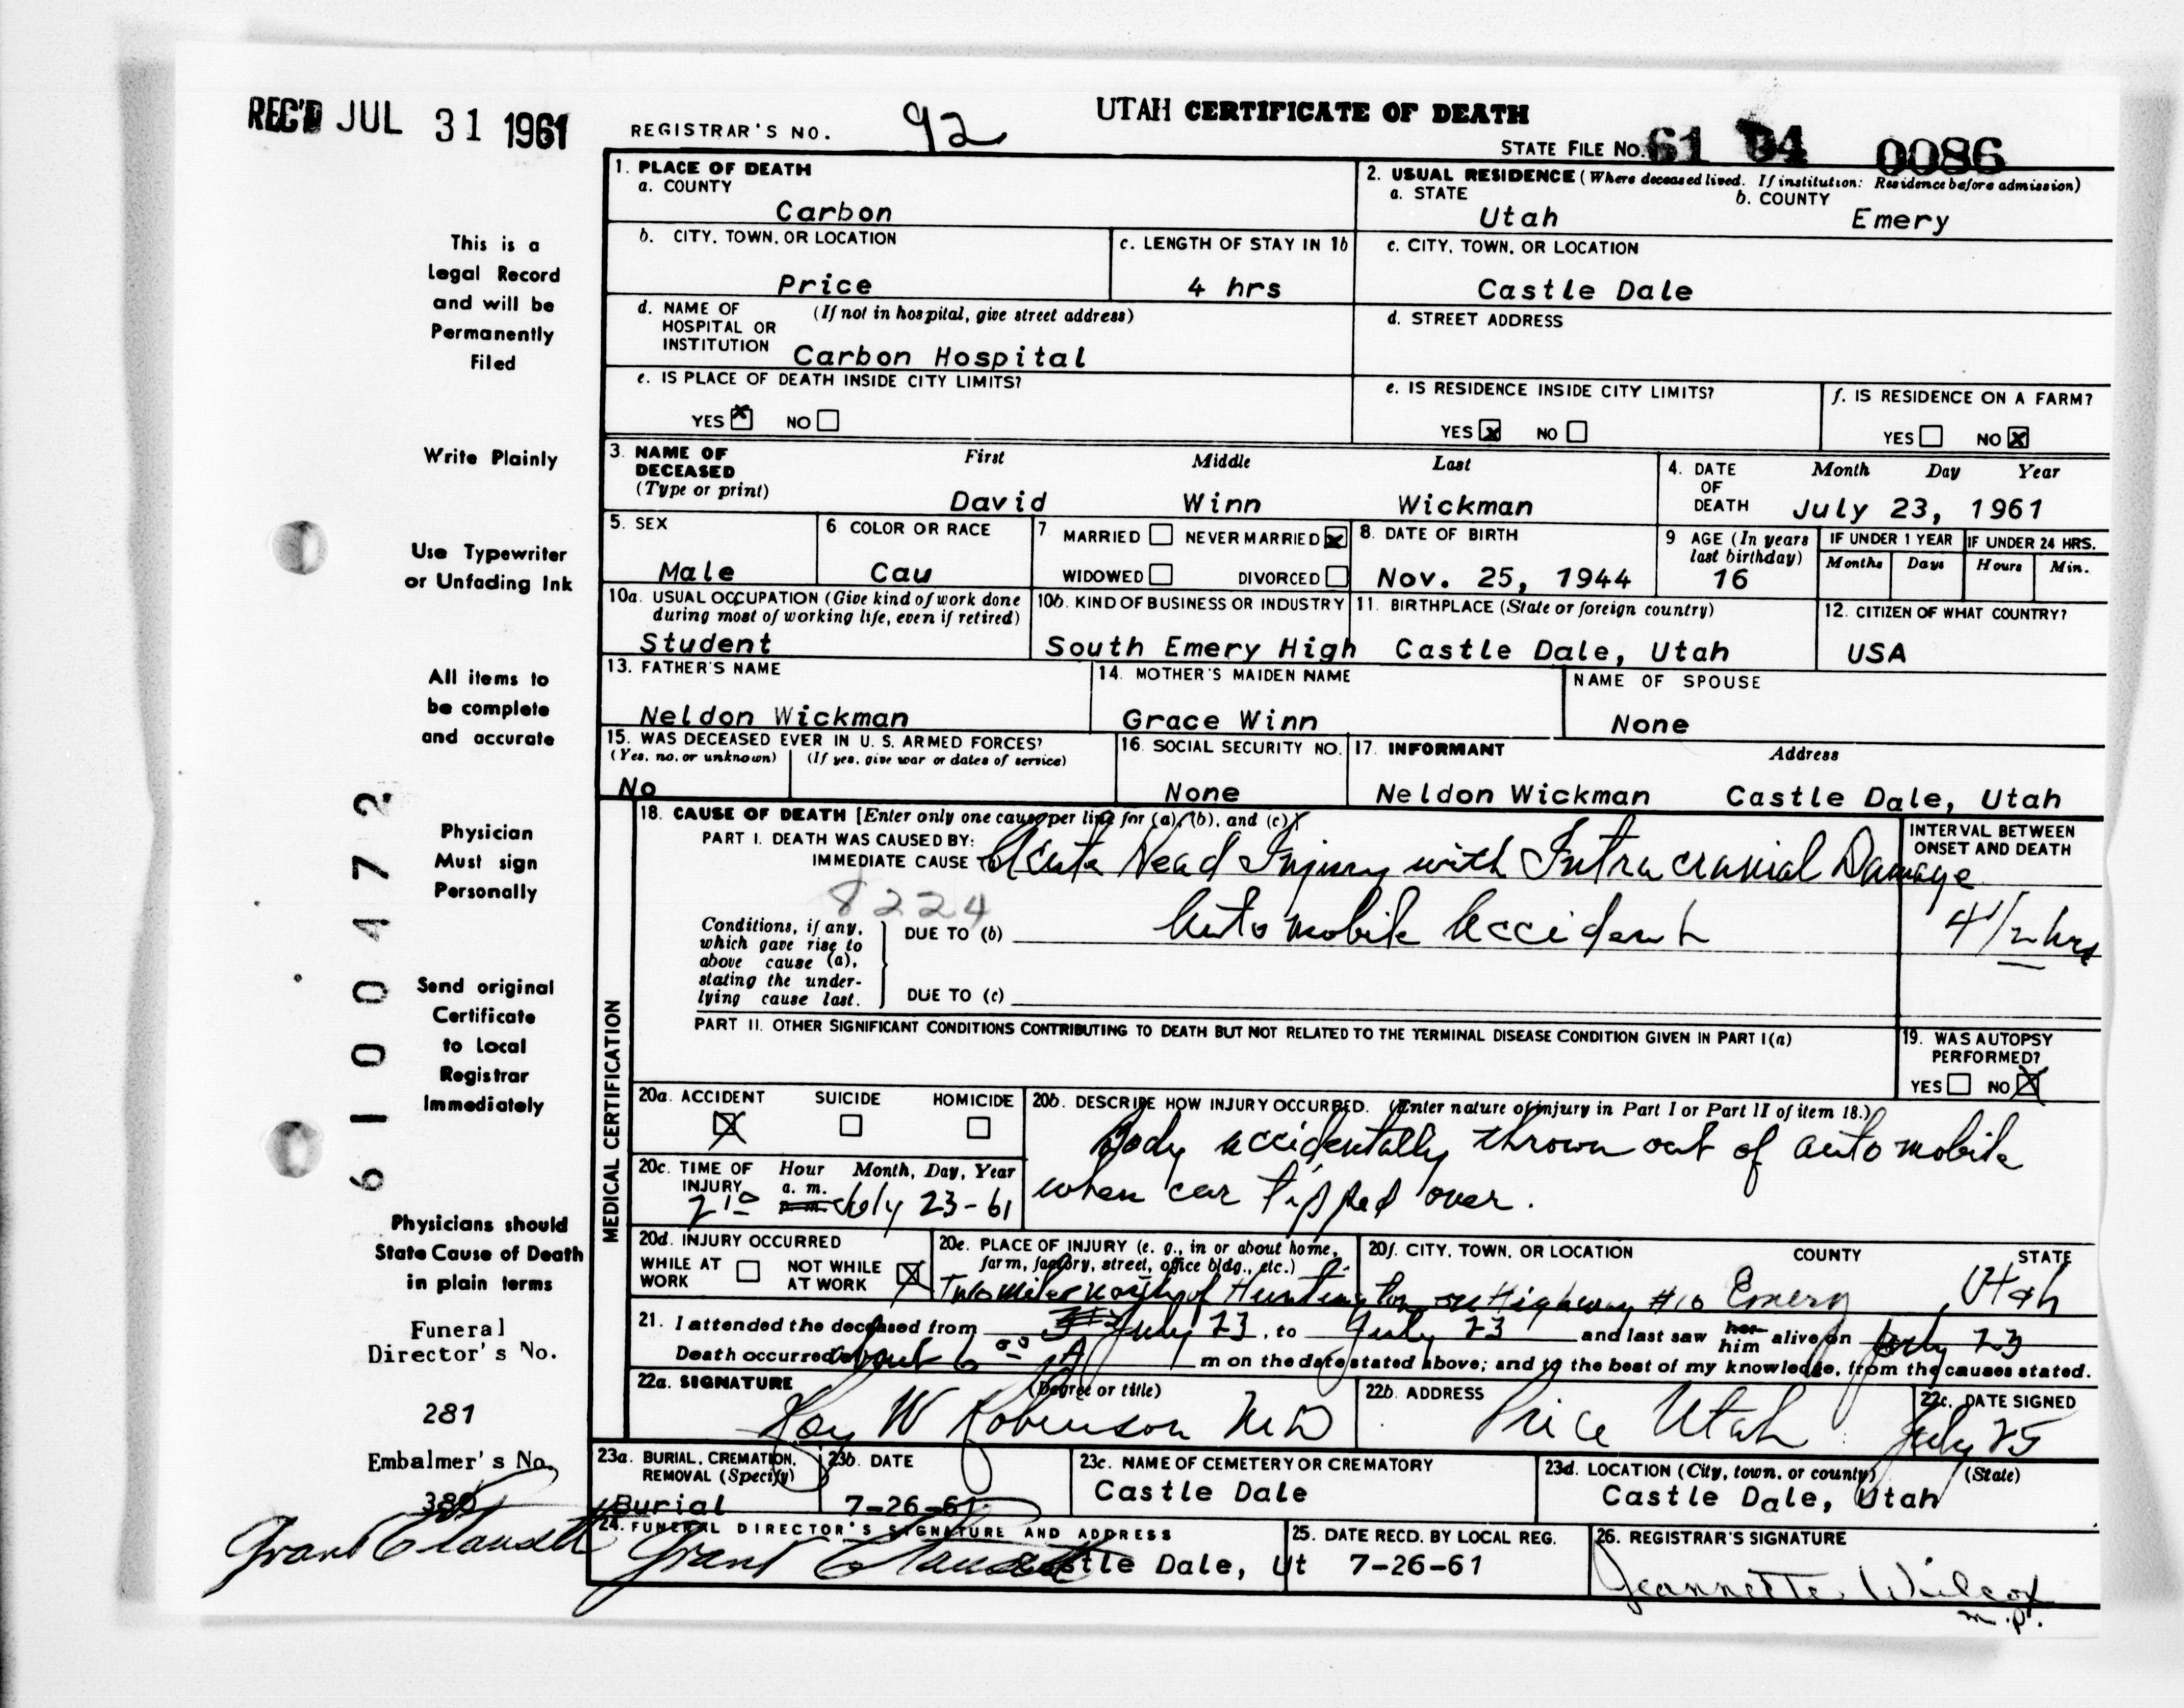 REC'D JUL 31 1961
REGISTRAR'S NO. 92
UTAH CERTIFICATE OF DEATH
STATE FILE NO. 61 04 0086
1. PLACE OF DEATH
a. COUNTY
Carbon
2. USUAL RESIDENCE (Where deceased lived. If institution: Residence before admission)
a. STATE b. COUNTY
Utah Emery
b. CITY, TOWN, OR LOCATION
Price
c. LENGTH OF STAY IN 1b
4 hrs
c. CITY, TOWN, OR LOCATION
Castle Dale
d. NAME OF HOSPITAL OR INSTITUTION (If not in hospital, give street address)
Carbon Hospital
d. STREET ADDRESS
e. IS PLACE OF DEATH INSIDE CITY LIMITS?
YES x NO
e. IS RESIDENCE INSIDE CITY LIMITS?
YES x NO
f. IS RESIDENCE ON A FARM?
YES NO x
3. NAME OF DECEASED (Type or print)
First Middle Last
David Winn Wickman
4. DATE OF DEATH Month Day Year
July 23, 1961
5. SEX
Male
6 COLOR OR RACE
Cau
7 MARRIED NEVER MARRIED x
WIDOWED DIVORCED
8. DATE OF BIRTH
Nov. 25, 1944
9 AGE (In years last birthday)
16
IF UNDER 1 YEAR IF UNDER 24 HRS.
Months Days Hours Min.
10a. USUAL OCCUPATION (Give kind of work done during most of working life, even if retired)
Student
10b. KIND OF BUSINESS OR INDUSTRY
South Emery High
11. BIRTHPLACE (State or foreign country)
Castle Dale, Utah
12. CITIZEN OF WHAT COUNTRY?
USA
13. FATHER'S NAME
Neldon Wickman
14. MOTHER'S MAIDEN NAME
Grace Winn
NAME OF SPOUSE
None
15. WAS DECEASED EVER IN U. S. ARMED FORCES?
(Yes, no, or unknown) (If yes, give war or dates of service)
No
16. SOCIAL SECURITY NO.
None
17. INFORMANT Address
Neldon Wickman Castle Dale, Utah
MEDICAL CERTIFICATION
18. CAUSE OF DEATH [Enter only one cause per line for (a), (b), and (c)]
PART I. DEATH WAS CAUSED BY:
IMMEDIATE CAUSE (a) Acute Head Injury with Intracranial Damage
INTERVAL BETWEEN ONSET AND DEATH
4 1/2 hrs
8224
Conditions, if any, which gave rise to above cause (a), stating the underlying cause last.
DUE TO (b) Automobile Accident
DUE TO (c)
PART II. OTHER SIGNIFICANT CONDITIONS CONTRIBUTING TO DEATH BUT NOT RELATED TO THE TERMINAL DISEASE CONDITION GIVEN IN PART I(a)
19. WAS AUTOPSY PERFORMED?
YES NO X
20a. ACCIDENT SUICIDE HOMICIDE
X
20b. DESCRIBE HOW INJURY OCCURRED. (Enter nature of injury in Part I or Part II of item 18.)
Body accidentally thrown out of automobile
when car tipped over.
20c. TIME OF INJURY Hour Month, Day, Year
2 10 a. m. p. m. July 23-61
20d. INJURY OCCURRED
WHILE AT WORK NOT WHILE AT WORK X
20e. PLACE OF INJURY (e. g., in or about home, farm, factory, street, office bldg., etc.)
20f. CITY, TOWN, OR LOCATION COUNTY STATE
Two miles north of Huntington on Highway #10 Emery, Utah
21. I attended the deceased from July 23, to July 23 and last saw her him alive on July 23
Death occurred about 6 00 A m on the date stated above; and to the best of my knowledge, from the causes stated.
22a. SIGNATURE (Degree or title)
Roy W Robinson MD
22b. ADDRESS
Price Utah
22c. DATE SIGNED
July 25
23a. BURIAL, CREMATION, REMOVAL (Specify)
Burial
23b. DATE
7-26-61
23c. NAME OF CEMETERY OR CREMATORY
Castle Dale
23d. LOCATION (City, town, or county) (State)
Castle Dale, Utah
24. FUNERAL DIRECTOR'S SIGNATURE AND ADDRESS
Grant Castle Dale, Ut
25. DATE RECD. BY LOCAL REG.
7-26-61
26. REGISTRAR'S SIGNATURE
Jeannette Wilcox
m.p.
This is a
Legal Record
and will be
Permanently
Filed
Write Plainly
Use Typewriter
or Unfading Ink
All items to
be complete
and accurate
Physician
Must sign
Personally
Send original
Certificate
to Local
Registrar
Immediately
Physicians should
State Cause of Death
in plain terms
Funeral
Director's No.
281
Embalmer's No.
Grant
6100472